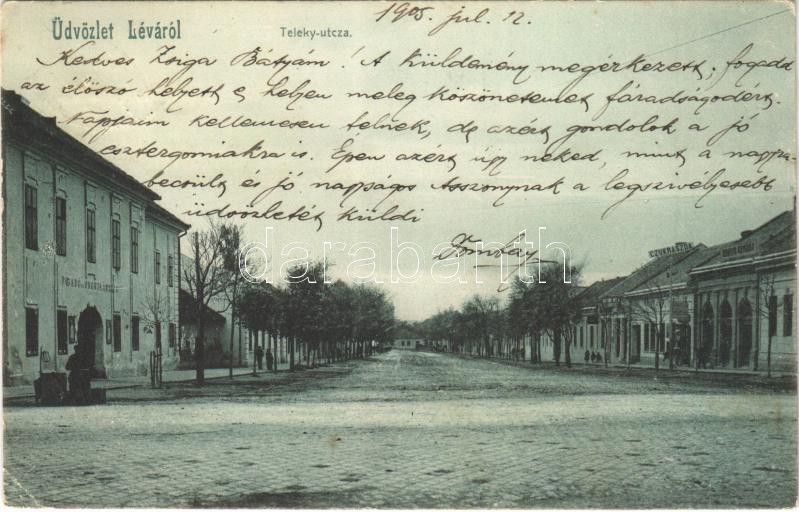 Üdvözlet Léváról
Teleky-utcza.
1905 jul. 12.
Kedves Zsiga Bátyám! A küldemény megérkezett, fogadd
az élőszó helyett e helyen meleg köszönetemet fáradságodért.
Napjaim kellemesen telnek, de azért gondolok a jó
esztergomiakra is. Épen azért úgy neked, mint a nagyra-
becsült és jó nagyságos Asszonynak a legszívélyesebb
üdvözletét küldi
CZUKRASZDA
darabanth.com